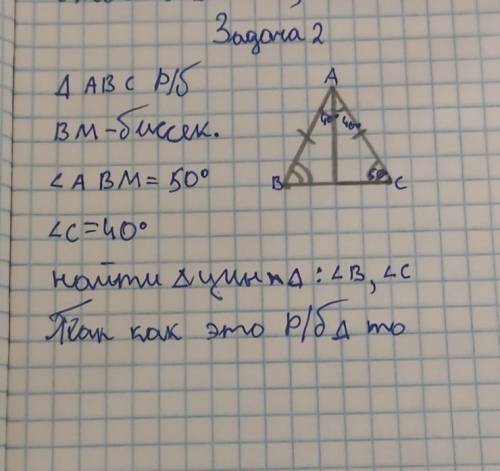 Задача 2
Δ ABC р/б
BM-биссек.
∠ABM=50°
∠C=40°
найти Δ: ∠B, ∠C
Так как это р/б Δ то
A
40° 40°
B
50°
C